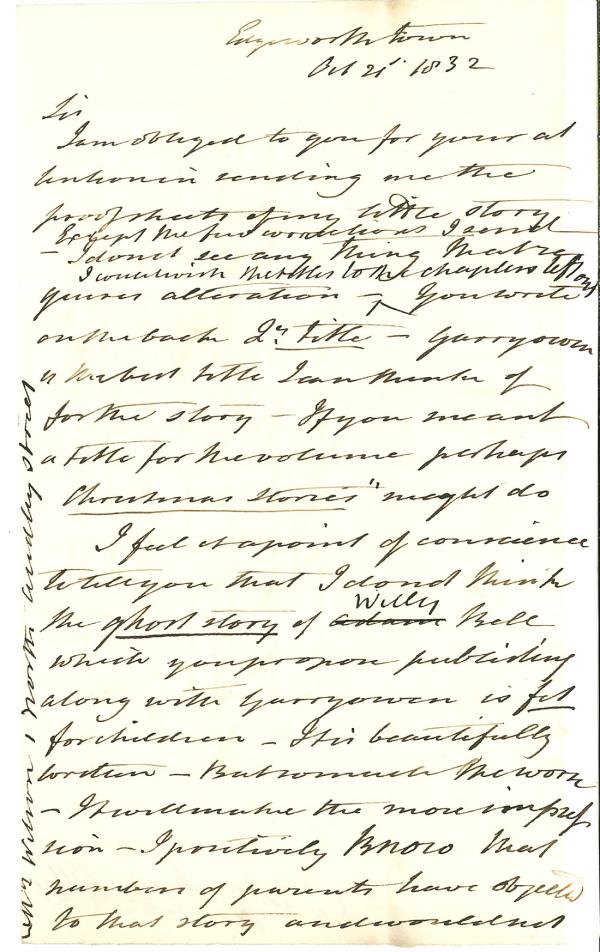 Edgeworthstown
Oct 21st 1832
Sir
I am obliged to you for your at
tention in sending me the
proof sheets of my little story
Except the few corrections I send
- I do not see any thing that re
I would wish the titles to the chapters left out
quires alteration - You write
on the back 2d. title - Garryowen
is the best title I can think of
for the story - If you meant
a title for the volume perhaps
Christmas stories" might do
I feel it a point of conscience
to tell you that I do not think
the ghost story of adam Willy Bell
which you propose publishing
along with Garryowen is fit
for children - It is beautifully
written - But so much the worse
- It will make the more impres
sion - I positively know that
numbers of parents have objected
to that story and would not
Mr Wilson 1 North Audley Street